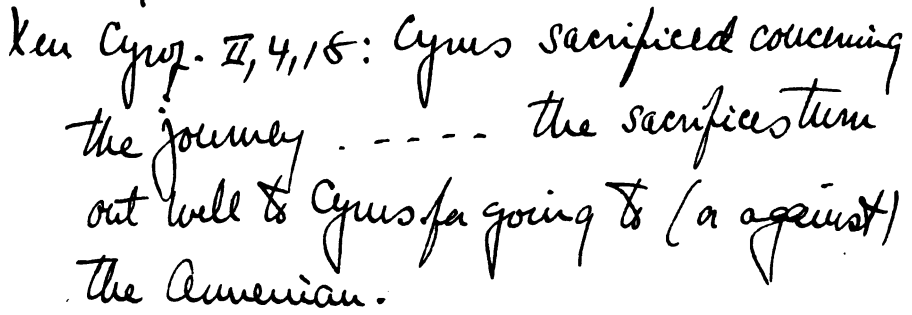 Xen Cyrop. II, 4, 18: Cyrus sacrificed concerning
the journey . - - - - the sacrifices turn
out well to Cyrus for going to (or against)
the Armenian.